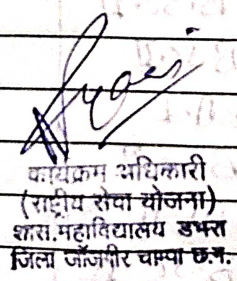 कार्यक्रम अधिकारी
(राष्ट्रीय सेवा योजना)
शास.महाविद्यालय डभरा
जिला जॉजगीर चाम्पा छ.ग.